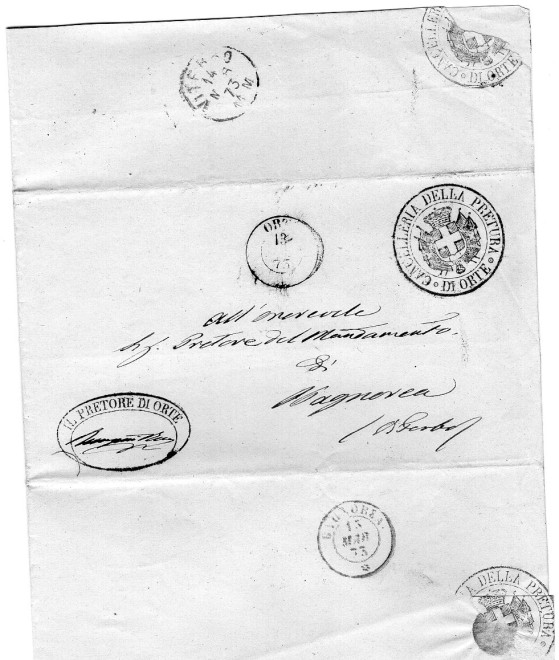 CANCELLERIA
DI ORTE
VITERBO
14
73
M
CANCELLERIA DELLA PRETURA
DI ORTE
ORTE
13
73
All'onorevole
Pretore del Mandamento
di
Bagnorea
IL PRETORE DI ORTE
BAGNOREA
15
MAR
73
DELLA PRETURA